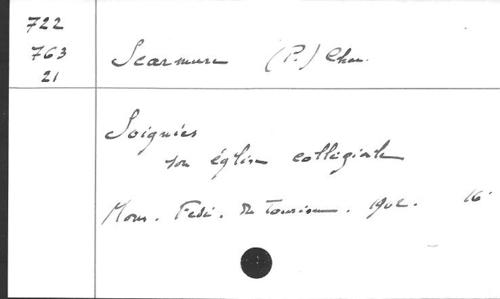 722
763
21
Scarmure (P.) Chan.
Soignies
son église collégiale
Mons. Fédé. du Tourisme. 16°